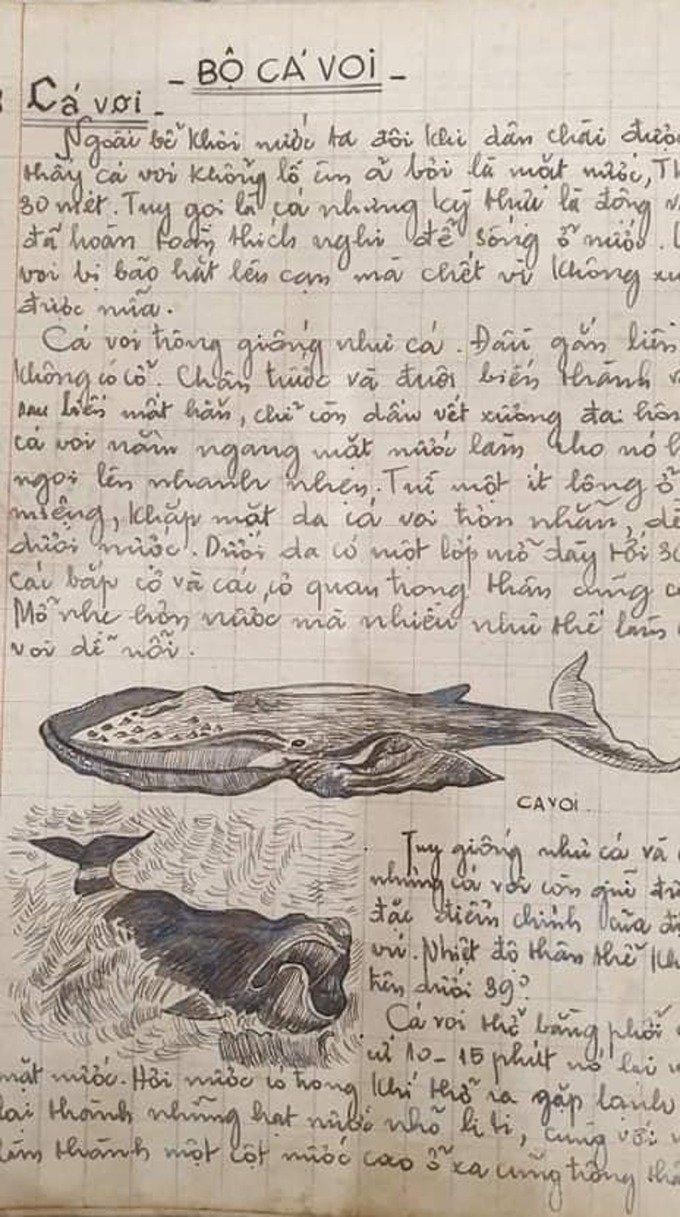 - BỘ CÁ VOI -
Cá voi -
Ngoài bể khơi nước ta đôi khi dân chài được
thấy cá voi khổng lồ bơi là mặt nước,
30 mét. Tuy gọi là cá nhưng kỳ thực là động
đã hoàn toàn thích nghi để sống ở nước.
voi bị bão hắt lên cạn mà chết vì không
được nữa.
Cá voi trông giống như cá. Đầu gắn liền
không có cổ. Chân trước và đuôi biến thành
sau biến mất hẳn, chỉ còn dấu vết xương đai
cá voi nằm ngang mặt nước làm cho nó
ngoi lên nhanh nhẹn. Trừ một ít lông ở
miệng, khắp mặt da cá voi trơn nhẵn,
dưới nước. Dưới da có một lớp mỡ dày tới
các bắp cơ và các cơ quan trong thân cũng
Mỡ nhẹ hơn nước mà nhiều như thế làm
voi dễ nổi.
CA VOI
Tuy giống như cá và
nhưng cá voi còn giữ
đặc điểm chính của
vú. Nhiệt độ thân thể
trên dưới 39°
Cá voi thở bằng phổi
cứ 10-15 phút nó lại
mặt nước. Hơi nước có trong khí thở ra gặp lạnh
lại thành những hạt nước nhỏ li ti, cùng với
làm thành một cột nước cao ở xa cũng trông